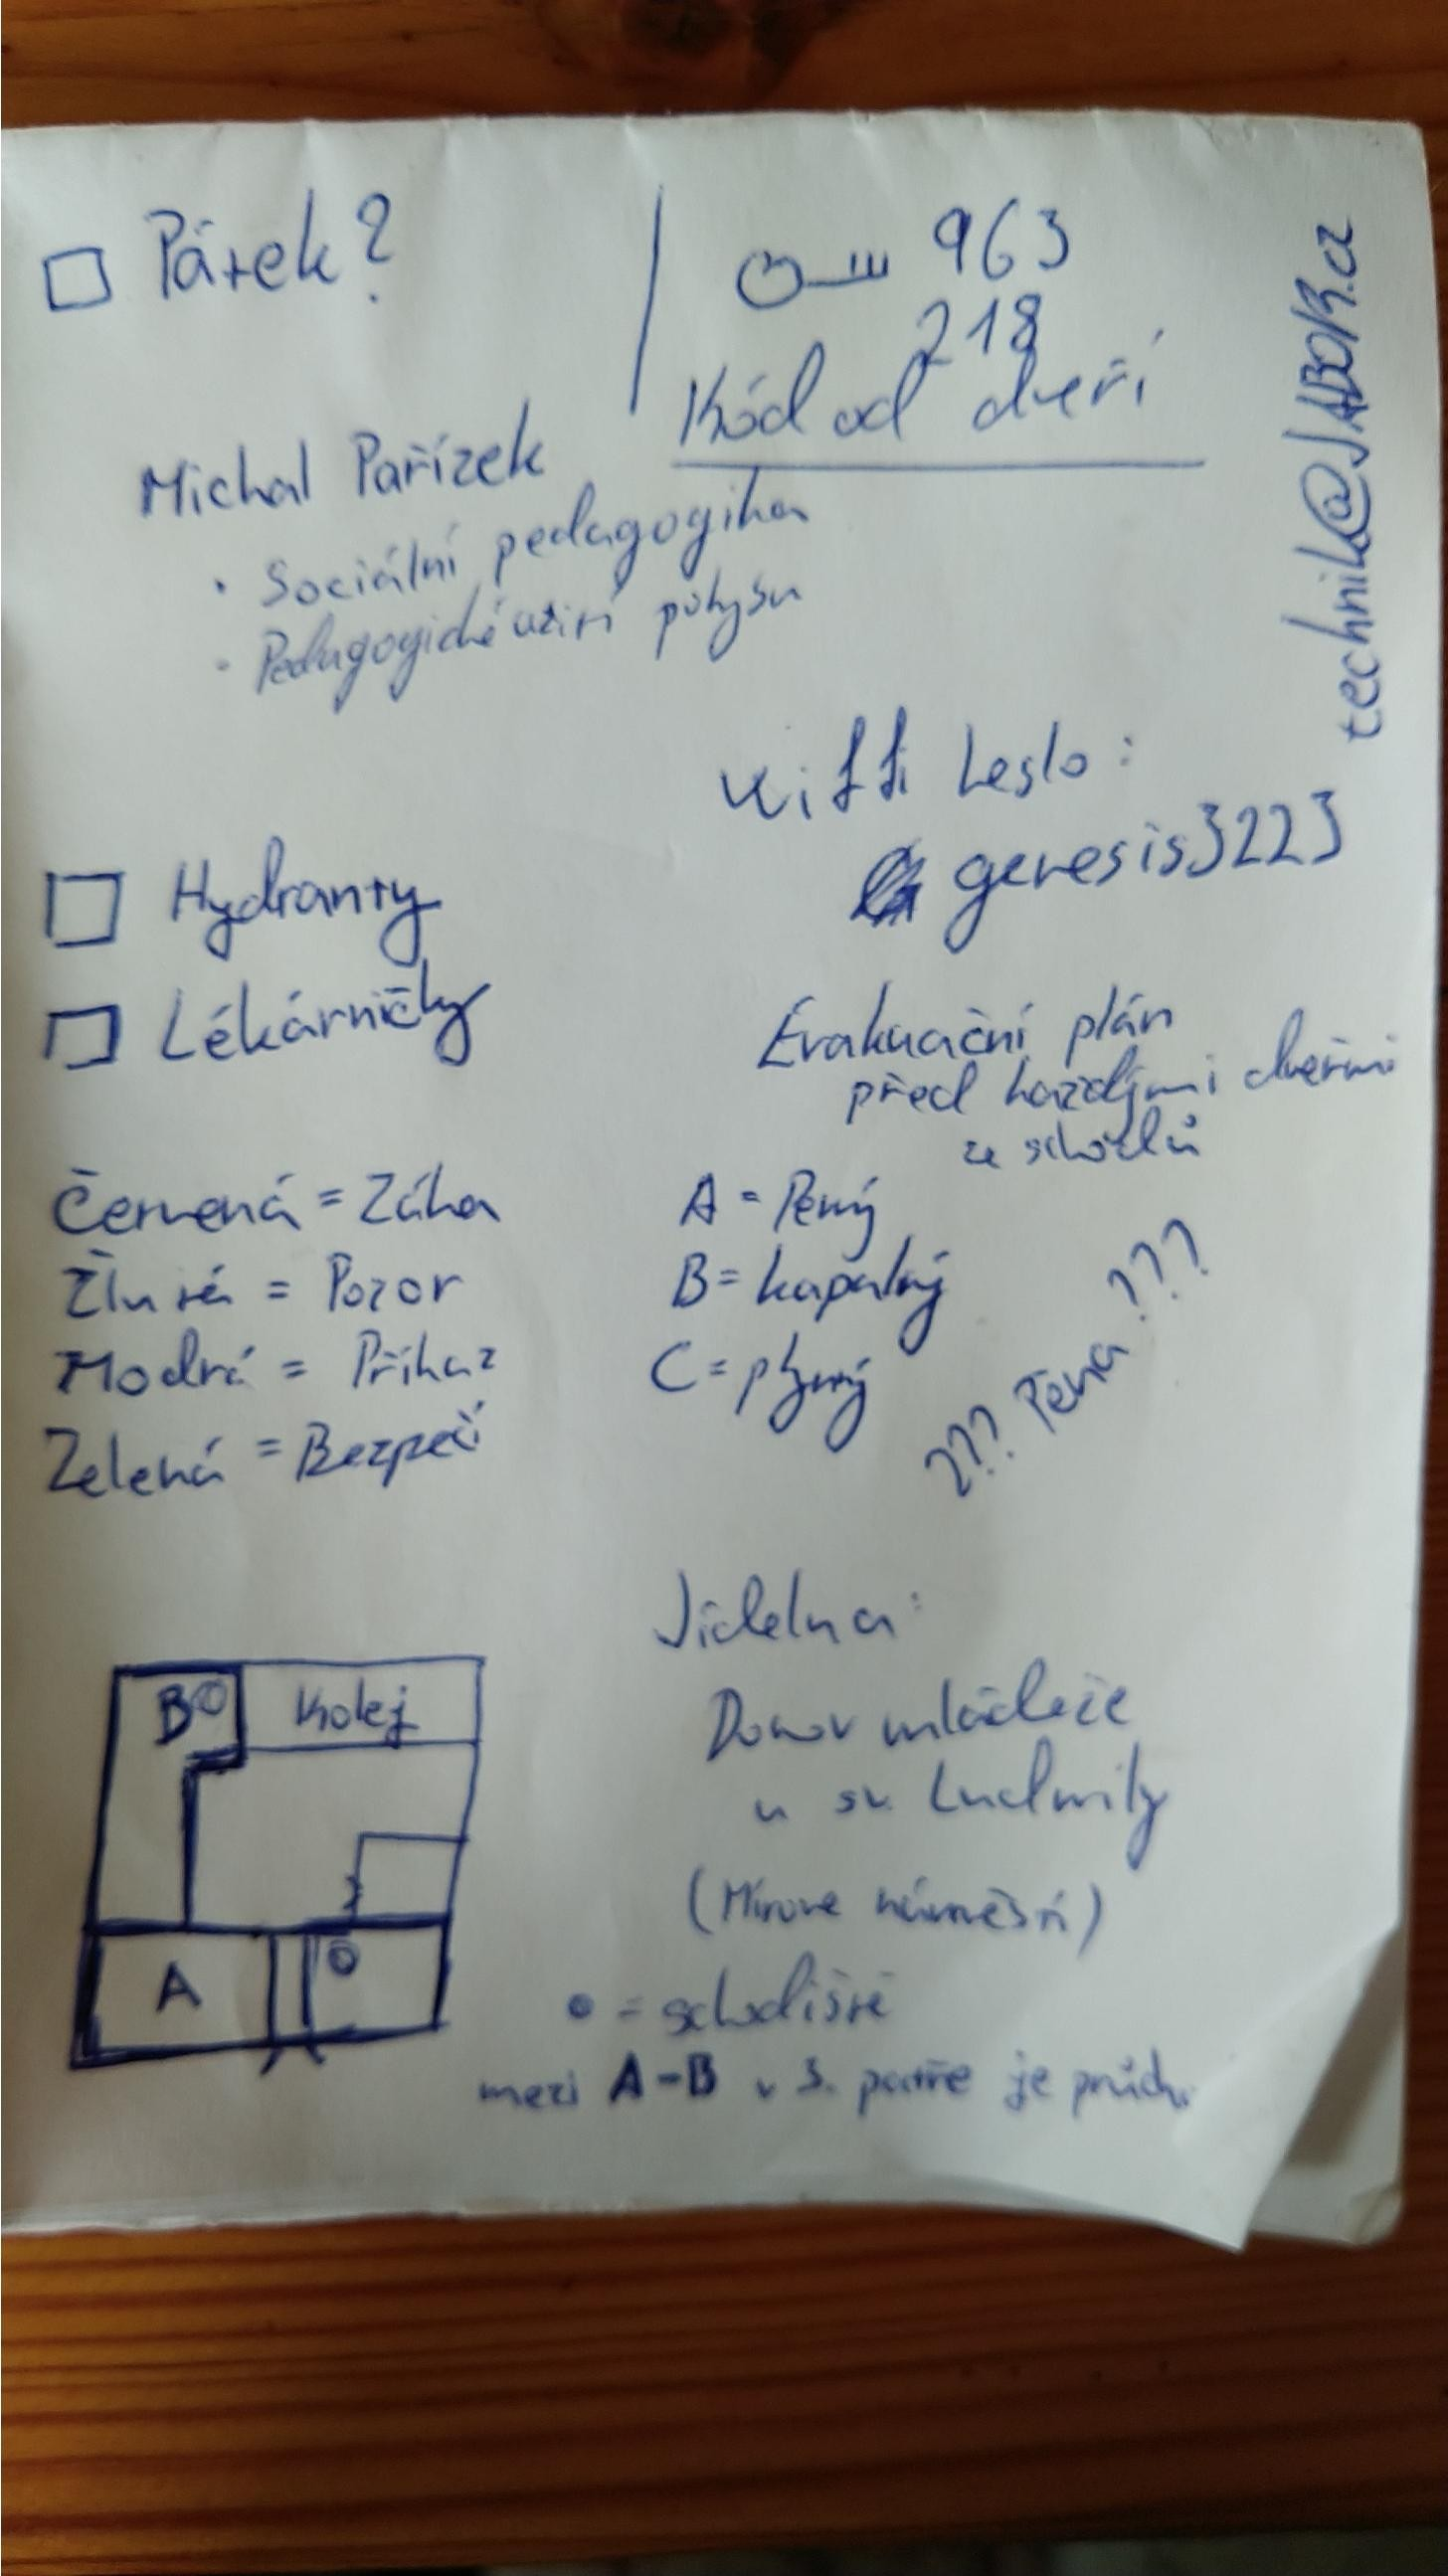 Párek?
963
218
Kód od dveří
technik@JABOK.cz
Michal Pařízek
• Sociální pedagogika
• Pedagogické užití pohybu
Wiffi heslo:
genesis3223
Hydranty
Lékárničky
Evakuační plán
před každými dveřmi
ze schodů
Červená = Zákaz
Žlutá = Pozor
Modrá = Příkaz
Zelená = Bezpečí
A = Pevný
B = kapalný
C = plynný
??? Pěna ???
Jídelna:
Domov mládeže
u sv. Ludmily
(Mírové náměstí)
B
Kolej
A
= schodiště
mezi A-B v 3. patře je průch.